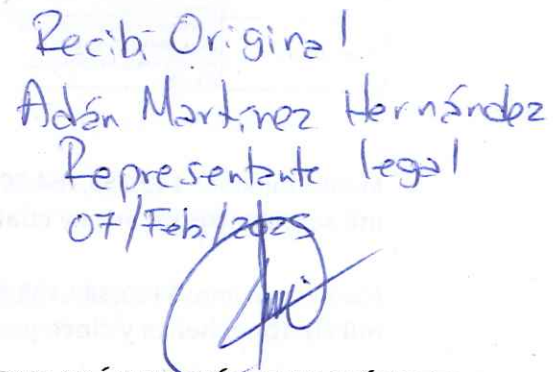 Recibí Original
Adán Martínez Hernández
Representante legal
07/Feb./2025